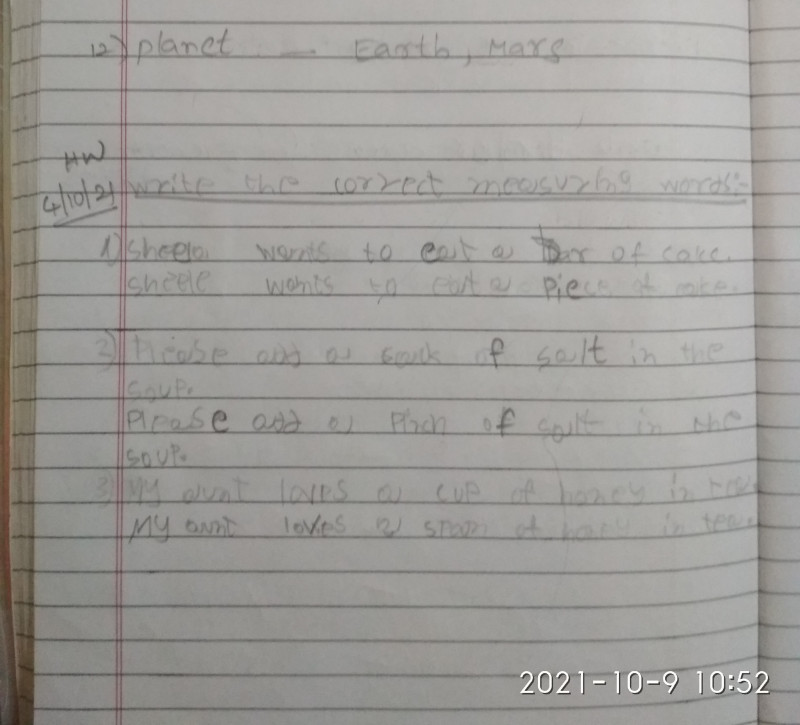 12) planet - Earth, Mars
HW
4/10/21 write the correct measuring words:-
1) Sheela wants to eat a bar of cake.
Sheele wants to eat a piece of cake.
2) Please add a sack of salt in the
soup.
Please add a Pinch of salt in the
soup.
3) My aunt loves a cup of honey in tea.
My aunt loves a spoon of honey in tea.
2021-10-9 10:52